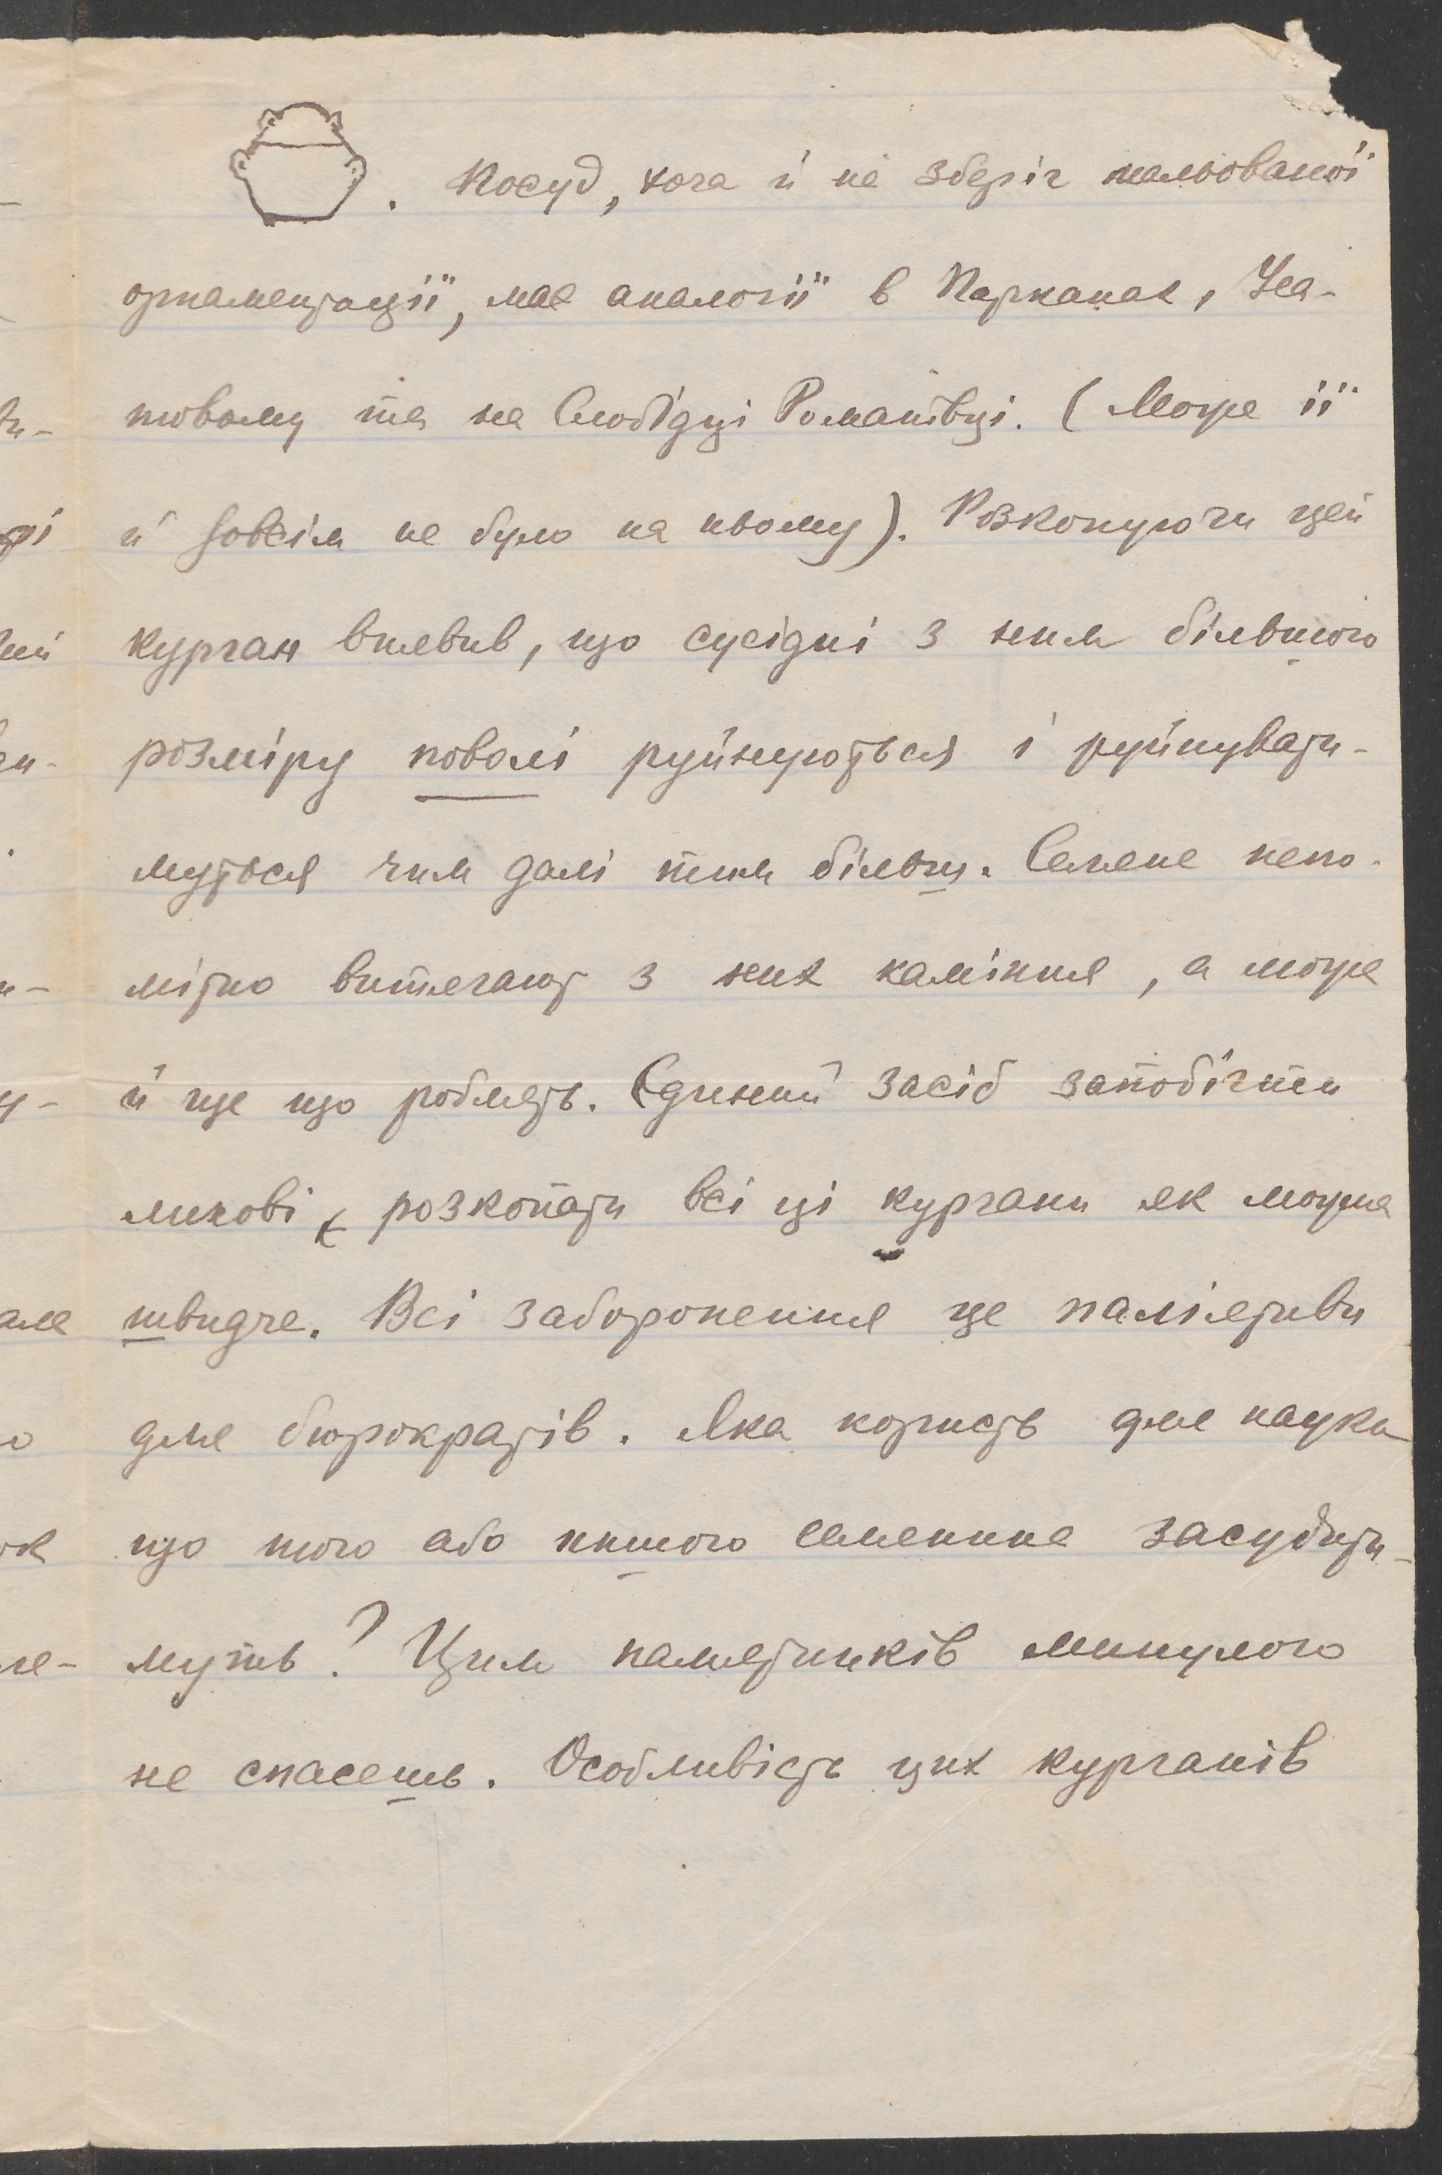 . Посуд, хоча й не зберіг мальованої
орнаментації, має аналогії в Парканах, Уса-
товому та на Слобідці Романівці. (Може її
й зовсім не було на ньому). Розкопуючи цей
курган виявив, що сусідні з ним більшого
розміру поволі руйнуються і руйнувати-
муться чим далі тим більш. Селяне непо-
мітно витягают з них каміння, а може
й ще що роблять. Єдиний засіб запобігти
лихові розкопати всі ці кургани як можна
швидче. Всі заборонення це паліятиви
для бюрократів. Яка користь для науки
що того або иншого селянина засудити-
муть? Цим памятників минулого
не спасешь. Особливість цих курганів
але
ок